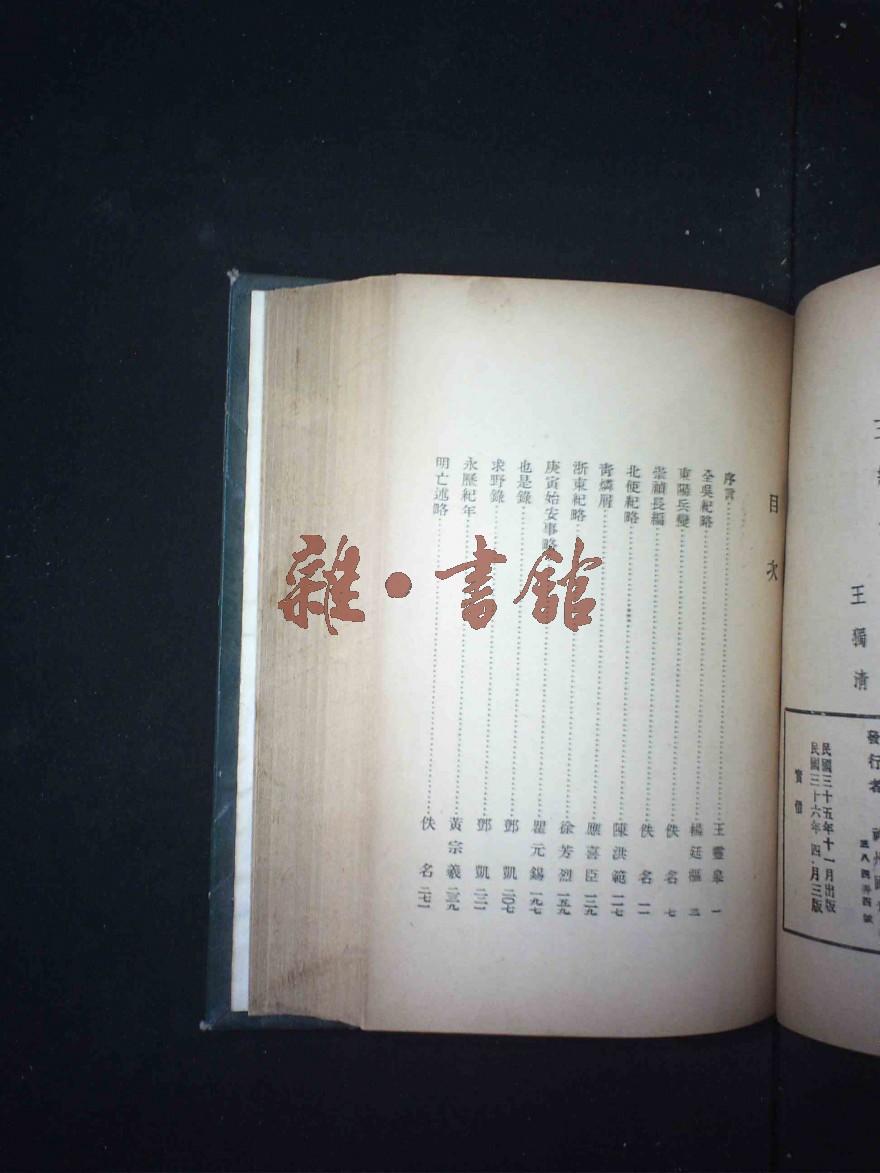 王獨清
發行者
民國三十五年十一月出版
民國三十六年四月三版
實價
目次
序言 王靈皋 一
全吳紀略 楊廷樞 三
東陽兵變 佚名 七
崇禎長編 佚名 一一
北使紀略 陳洪範 一一七
青燐屑 應喜臣 一三九
浙東紀略 徐芳烈 一五九
庚寅始安事略 瞿元錫 一九七
也是錄 鄧凱 二〇七
求野錄 鄧凱 二二一
永歷紀年 黃宗羲 二三九
明亡述略 佚名 二七一
雜·書館